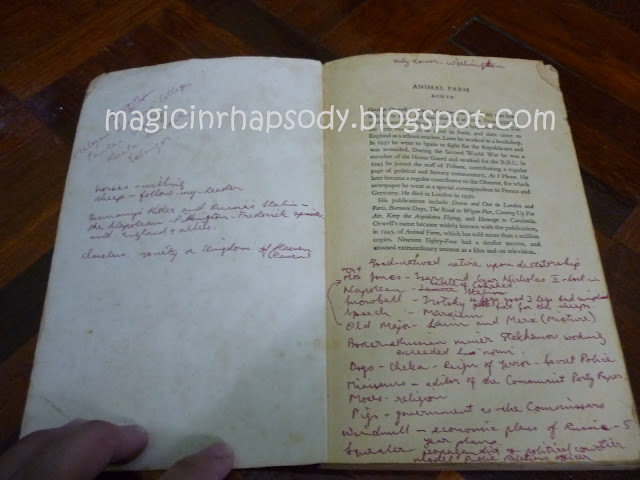 Malayan
College
horses - willing
sheep - follow-my-leader
Germany's Hitler and Russia's Stalin -
the Napoleon - Pilkington - Frederick episode
and England & allies.
Classless society a Kingdom of Heaven
(Raven)
magicinrhapsody.blogspot.com
ANIMAL FARM
England as a school-teacher. Later he worked in a bookshop.
In 1937 he went to Spain to fight for the Republicans and
was wounded. During the Second World War he was a
member of the Home Guard and worked for the B.B.C. In
1943 he joined the staff of Tribune, contributing a regular
page of political and literary commentary, As I Please. He
later became a regular contributor to the Observer, for which
newspaper he went as a special correspondent to France and
Germany. He died in London in 1950.
His publications include Down and Out in London and
Paris, Burmese Days, The Road to Wigan Pier, Coming Up For
Air, Keep the Aspidistra Flying, and Homage to Catalonia.
Orwell's name became widely known with the publication,
in 1945, of Animal Farm, which has sold more than a million
copies. Nineteen Eighty-Four had a similar success, and
aroused extraordinary interest as a film and on television.
Good-natured satire upon dictatorship
Mr Jones - Czar Nicholas II
Napoleon - Stalin
Snowball - Trotsky 4 legs good 2 legs bad
for the sheep
Speech - Marxism
Old Major - Lenin and Marx (Mixture)
Boxer - Russian miner Stakhanov working
exceeded his norm.
Dogs - Cheka - Reign of Terror - Secret Police
Minimus - editor of the Communist Party Paper
Moses - religion
Pigs - government as the Commissars
Windmill - economic plans of Russia - 5
year plans.
Squealer - propagandist or political courtier
model Public Relations officer